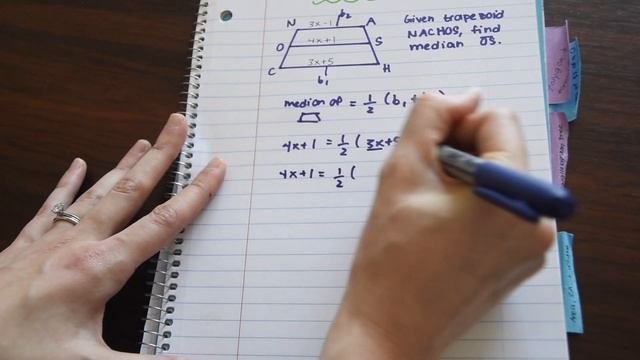 b₂
N 3x-1 A
O 4x+1 S
C 3x+5 H
b₁
Given trapezoid
NACHOS, find
median OS.
median of = 1/2 (b₁ +
4x+1 = 1/2 ( 3x+5
4x+1 = 1/2 (